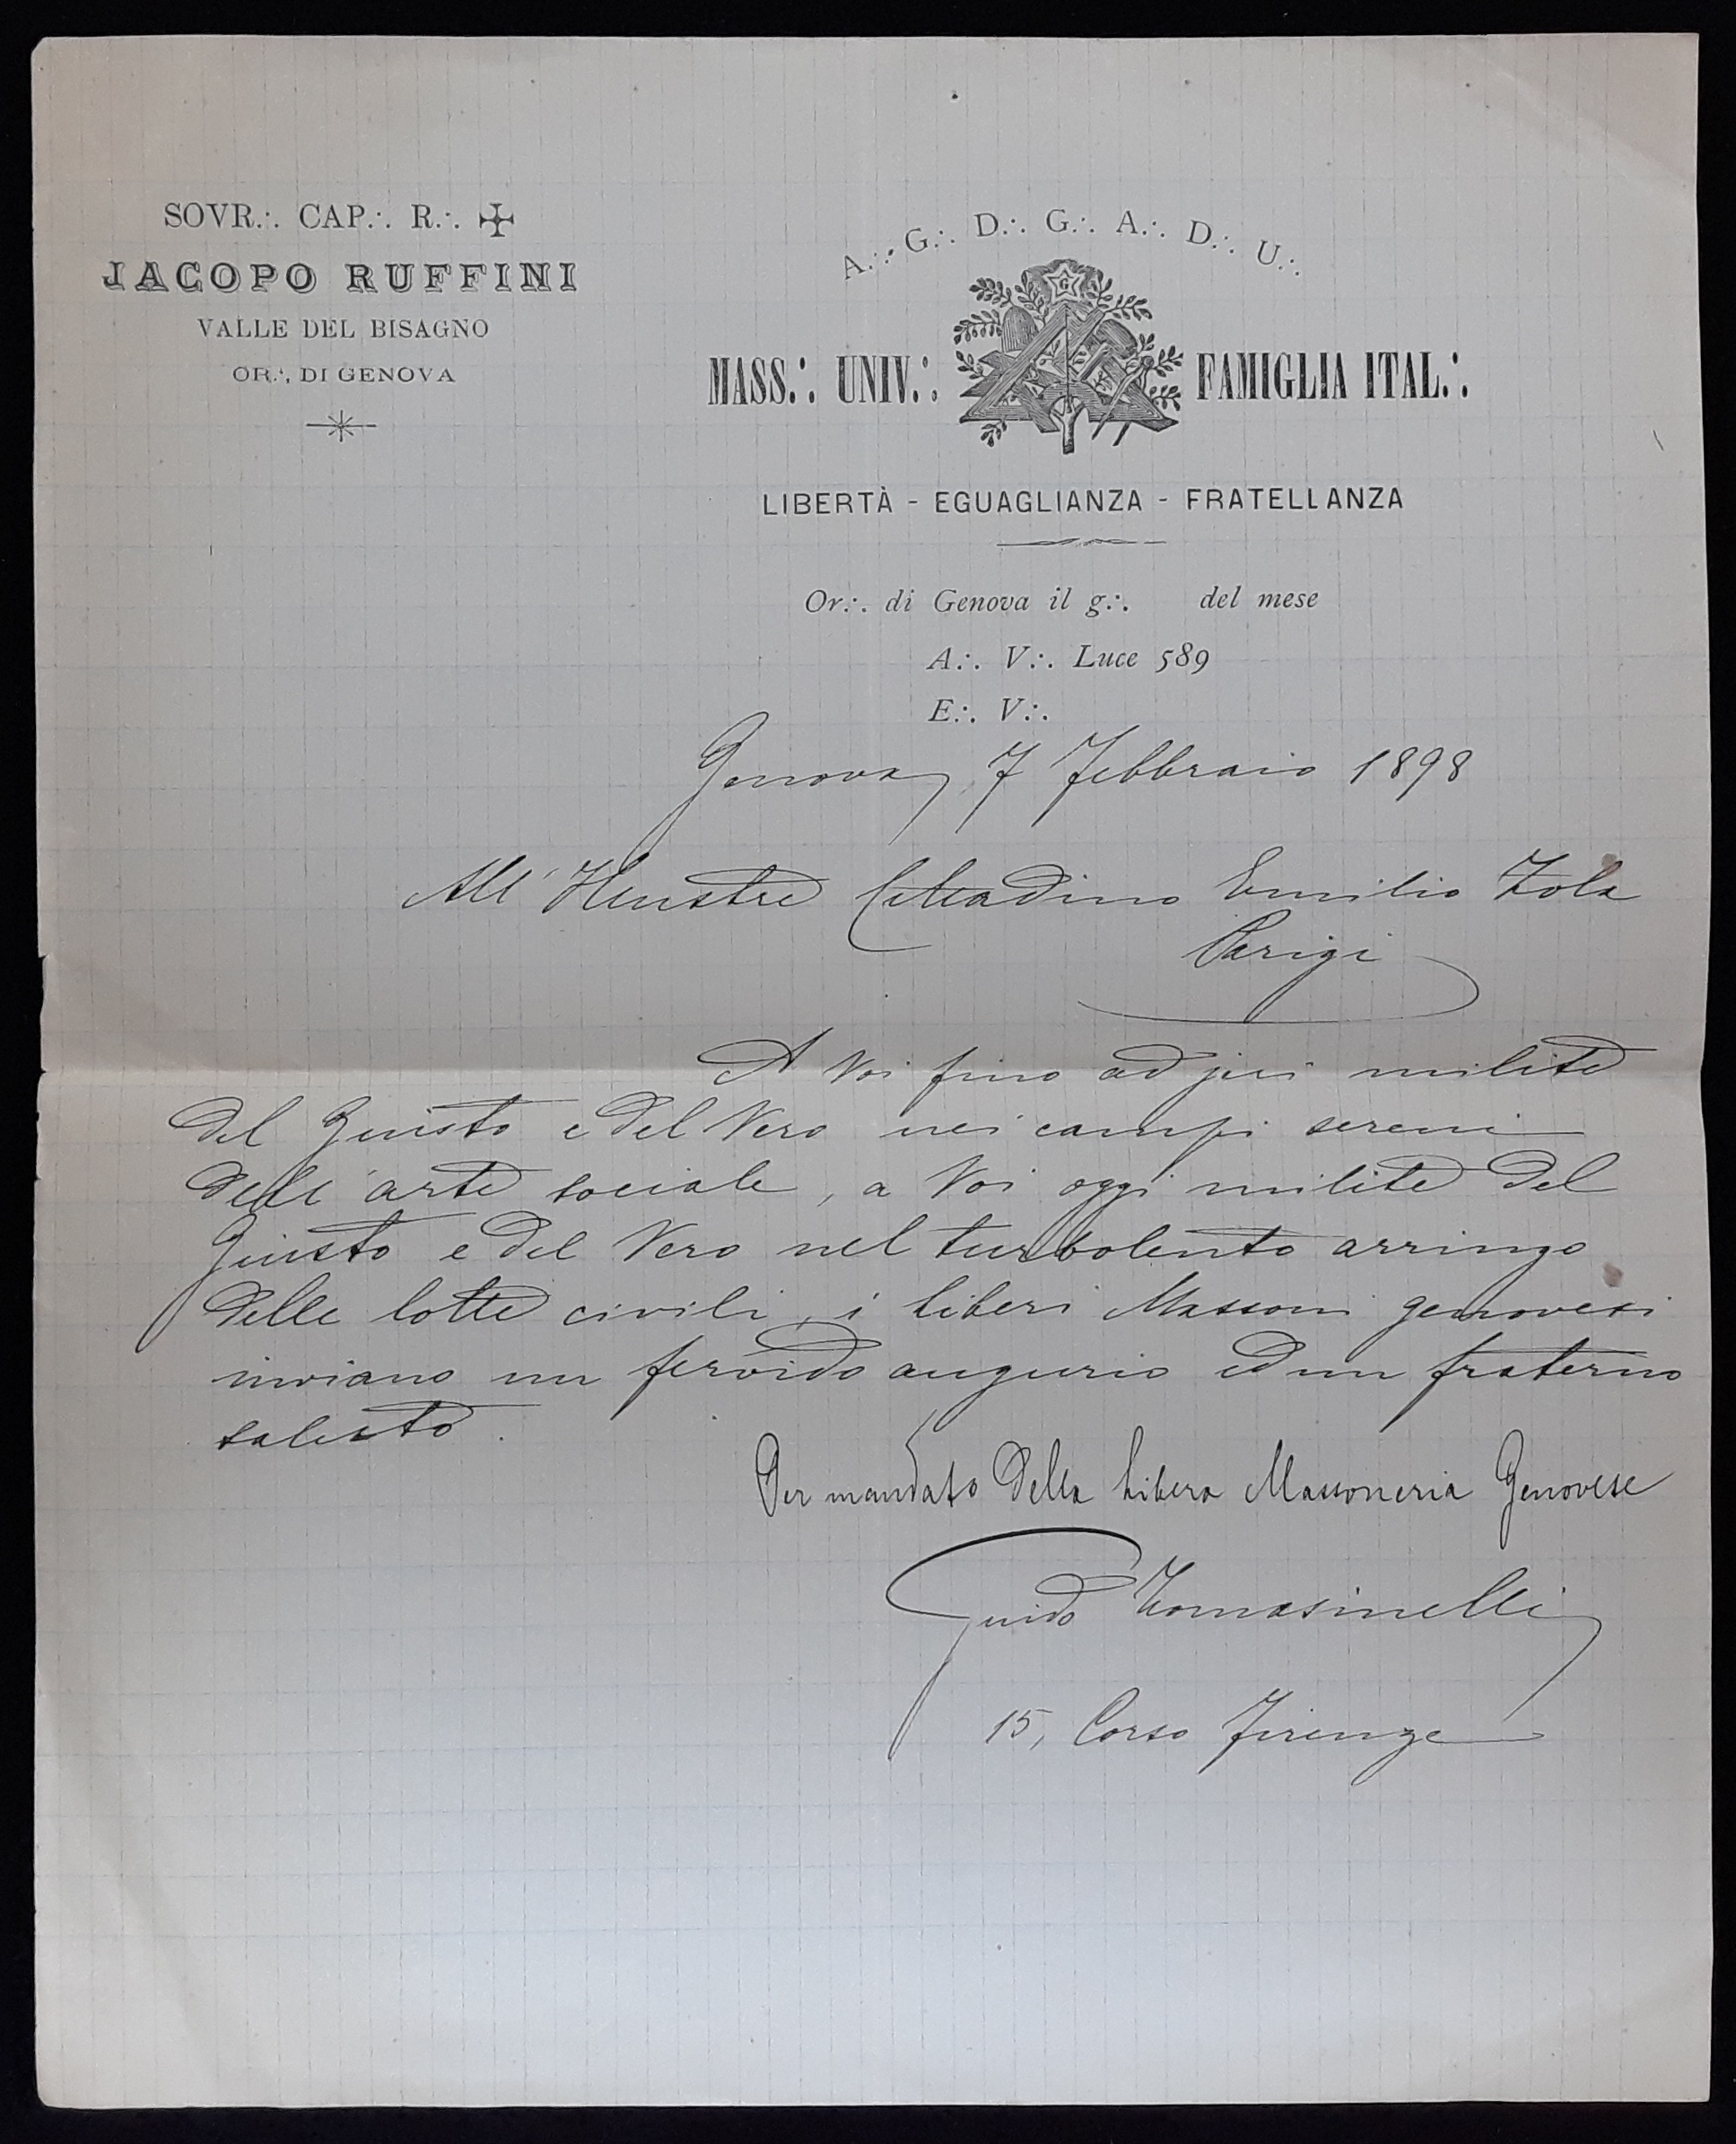 SOVR∴ CAP∴ R∴ ✠
JACOPO RUFFINI
VALLE DEL BISAGNO
OR∴ DI GENOVA
A∴ G∴ D∴ G∴ A∴ D∴ U∴
G
MASS∴ UNIV∴ FAMIGLIA ITAL∴
LIBERTÀ - EGUAGLIANZA - FRATELLANZA
Or∴ di Genova il g∴ del mese
A∴ V∴ Luce 589
E∴ V∴
Genova, 7 Febbraio 1898
All'Illustre Cittadino Emilio Zola
Parigi
A Voi fino ad jeri milite
del Giusto e del Vero nei campi sereni
dell'arte sociale, a Voi oggi milite del
Giusto e del Vero nel turbolento arringo
delle lotte civili, i liberi Massoni genovesi
inviano un fervido augurio ed un fraterno
saluto.
Per mandato della Libera Massoneria Genovese
Guido Tomasinelli
15, Corso Firenze